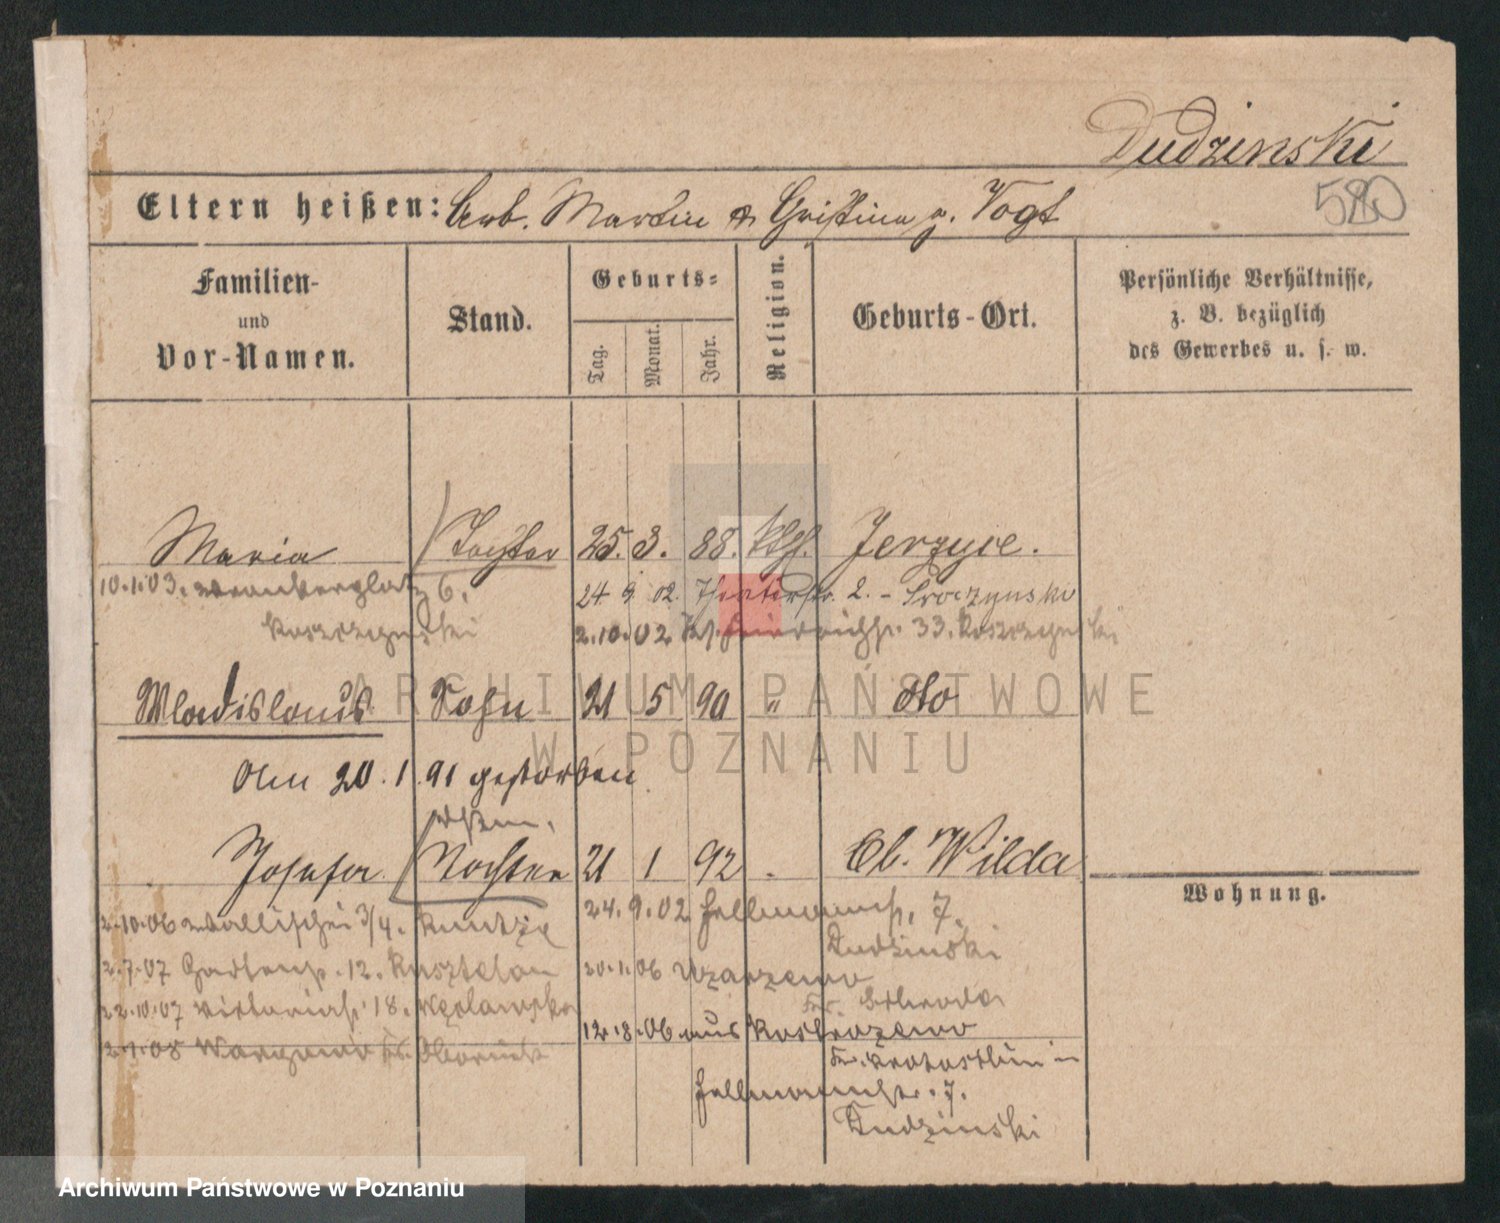 Dudzinski
580
Eltern heißen: Arb. Martin & Christina g. Vogt
Familien-
und
Vor-Namen.
Stand.
Geburts-
Tag.
Monat.
Jahr.
Religion.
Geburts-Ort.
Persönliche Verhältnisse,
z. B. bezüglich
des Gewerbes u. s. w.
Maria Tochter 25. 3. 88. kth. Jerzyce.
10.1.03. 6.
24 9 02. Theaterstr. 2. - Sroczynski
2.10.02 33.
Wladislaus Sohn 21 5 90 " dto
ARCHIWUM PAŃSTWOWE
W POZNANIU
Am 20.1.91 gestorben
Josefa Tochter 21 1 92 Ob. Wilda
Wohnung.
2.10.06 Wallischei 3/4.
24.9.02 7.
Dudzinski
2.7.07 Gartenstr. 12. Kusztelan
20.1.06
22.10.07 Victoriastr. 18.
12.8.06 aus
2.1.08
7.
Dudzinski
Archiwum Państwowe w Poznaniu